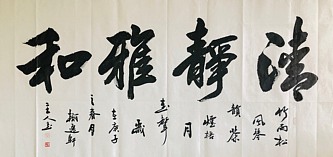 清靜雅和
竹雨松
風琴
韻茶
煙梧
月
書聲
歲
在庚子
之春月
主人上